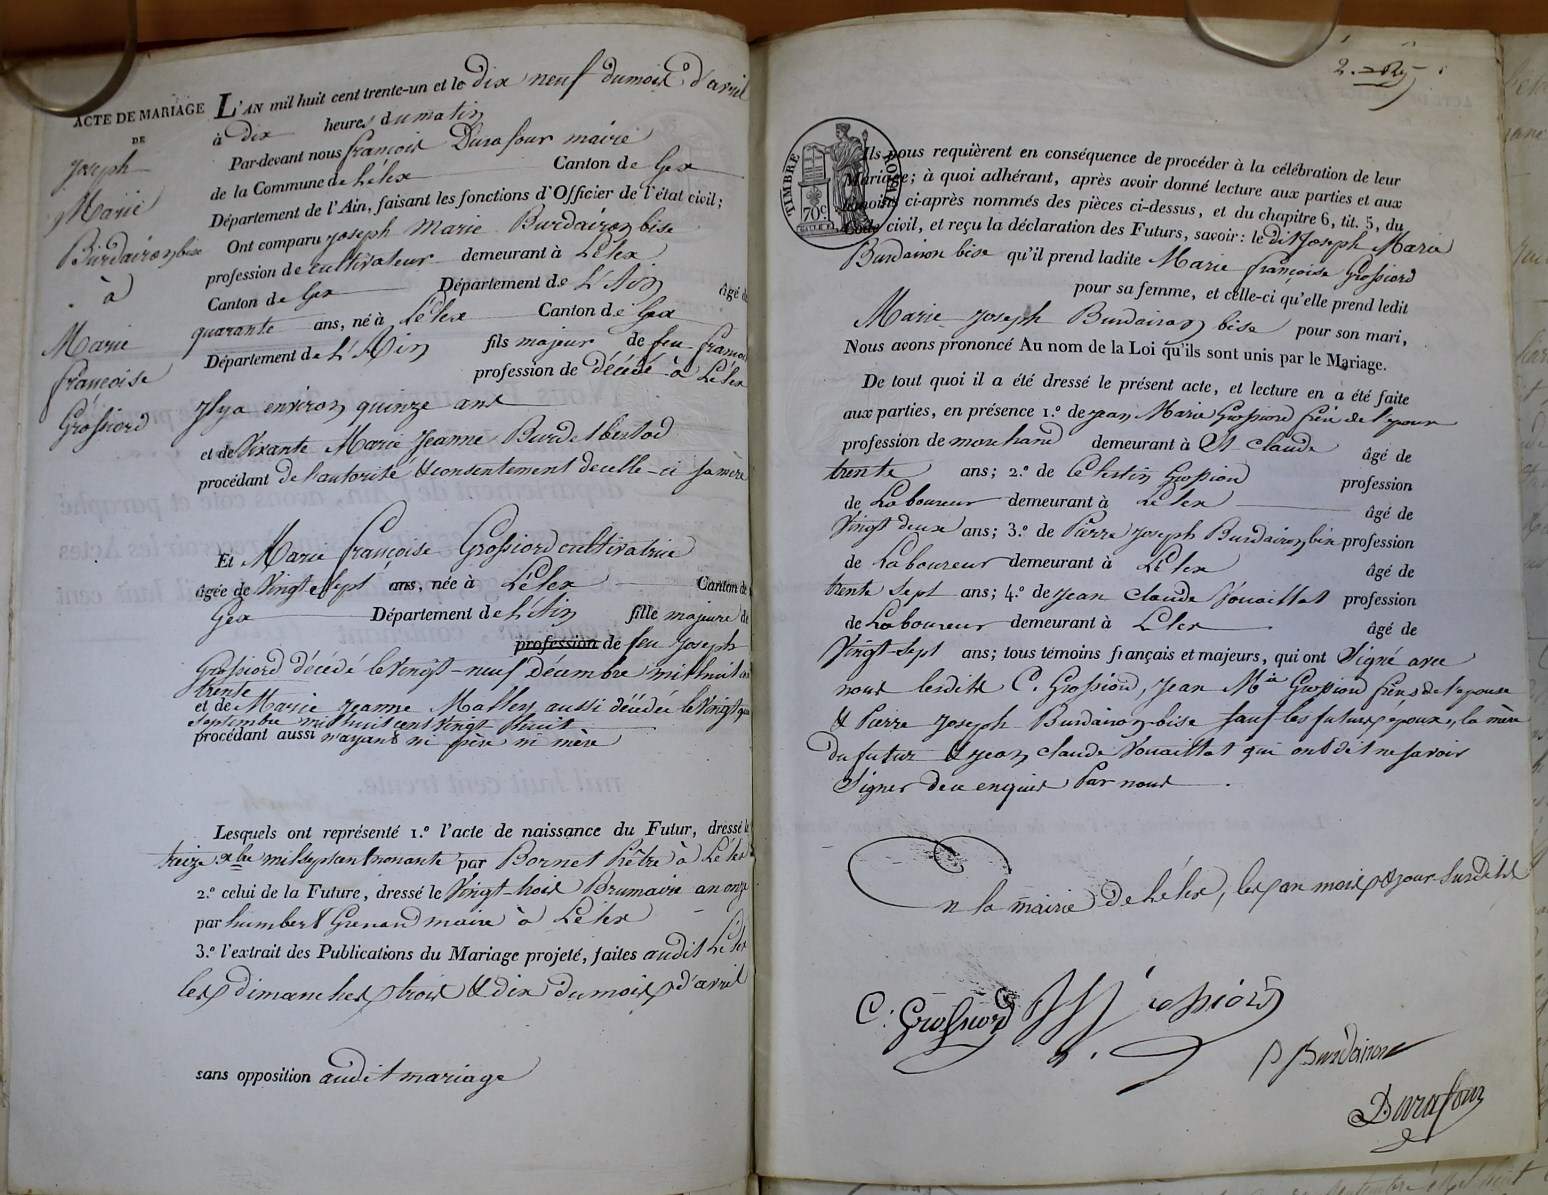 ACTE DE MARIAGE
DE
Joseph
Marie
Burdairon bise
à
Marie
françoise
Grossiord
L'AN mil huit cent trente-un et le dix neuf du mois d'avril
à dix heures du matin
Par-devant nous françois Durafour maire
de la Commune de Lélex Canton de Gex
Département de l'Ain, faisant les fonctions d'Officier de l'état civil;
Ont comparu joseph Marie Burdairon bise
profession de cultivateur demeurant à Lélex
Canton de Gex Département de L'Ain âgé de
quarante ans, né à Lélex Canton de Gex
Département de L'Ain fils majeur de feu françois
profession de décédé à Lélex
Il y a environ quinze ans
et de vivante Marie Jeanne Burdet
procédant de l'autorité & consentement de celle-ci sa mère
Et Marie françoise Grossiord cultivatrice
âgée de vingt sept ans, née à Lélex Canton de
Gex Département de L'Ain fille majeure de
profession de feu Joseph
Grossiord décédé le vingt-neuf décembre mil huit cent
trente
et de Marie Jeanne Mathey aussi décédée le vingt
septembre mil huit cent vingt huit
procédant aussi n'ayant ni père ni mère
Lesquels ont représenté 1.º l'acte de naissance du Futur, dressé le
treize Xbre mil sept cent nonante par Bornet Prêtre à Lélex
2.º celui de la Future, dressé le Vingt-trois Brumaire an onze
par humbert Grenard maire à Lélex
3.º l'extrait des Publications du Mariage projeté, faites audit Lélex
les dimanches trois & dix du mois d'avril
sans opposition audit mariage
2.
TIMBRE ROYAL
70c
Ils nous requièrent en conséquence de procéder à la célébration de leur
Mariage; à quoi adhérant, après avoir donné lecture aux parties et aux
témoins ci-après nommés des pièces ci-dessus, et du chapitre 6, tit. 5, du
Code civil, et reçu la déclaration des Futurs, savoir: le dit Joseph Marie
Burdairon bise qu'il prend ladite Marie françoise Grossiord
pour sa femme, et celle-ci qu'elle prend ledit
Marie Joseph Burdairon bise pour son mari,
Nous avons prononcé Au nom de la Loi qu'ils sont unis par le Mariage.
De tout quoi il a été dressé le présent acte, et lecture en a été faite
aux parties, en présence 1.º de jean Marie Grossiord frère de l'épouse
profession de marchand demeurant à St Claude âgé de
trente ans; 2.º de Celestin Grossiord profession
de Laboureur demeurant à Lélex âgé de
Vingt deux ans; 3.º de Pierre joseph Burdairon bise profession
de Laboureur demeurant à Lélex âgé de
trente sept ans; 4.º de jean Claude Jouaillat profession
de Laboureur demeurant à Lélex âgé de
Vingt-sept ans; tous témoins français et majeurs, qui ont signé avec
nous lesdits C. Grossiord, Jean Mie Grossiord frères de l'épouse
& Pierre joseph Burdairon-bise sauf les futurs époux, la mère
du futur & jean claude Jouaillat qui ont dit ne savoir
signer de ce enquis par nous.
En la mairie de Lélex, les an mois & jour susdits
C: Grossiord
P J Burdairon
Durafour